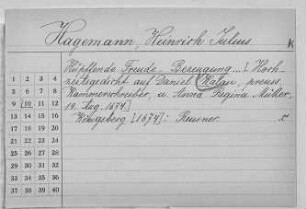 Hagemann, Heinrich Julius
K
Hüpffende Freude-Bezeugung...[Hoch-
zeitsgedicht auf Daniel Kalau, preuss.
Kammerschreiber, u. Maria Regina Müller,
14. Aug. 1674.]
Königsberg [1674]: Reusner.
1 2 3 4
5 6 7 8
9 10 11 12
13 14 15 16
17 18 19 20
21 22 23 24
25 26 27 28
29 30 31 32
33 34 35 36
37 38 39 40